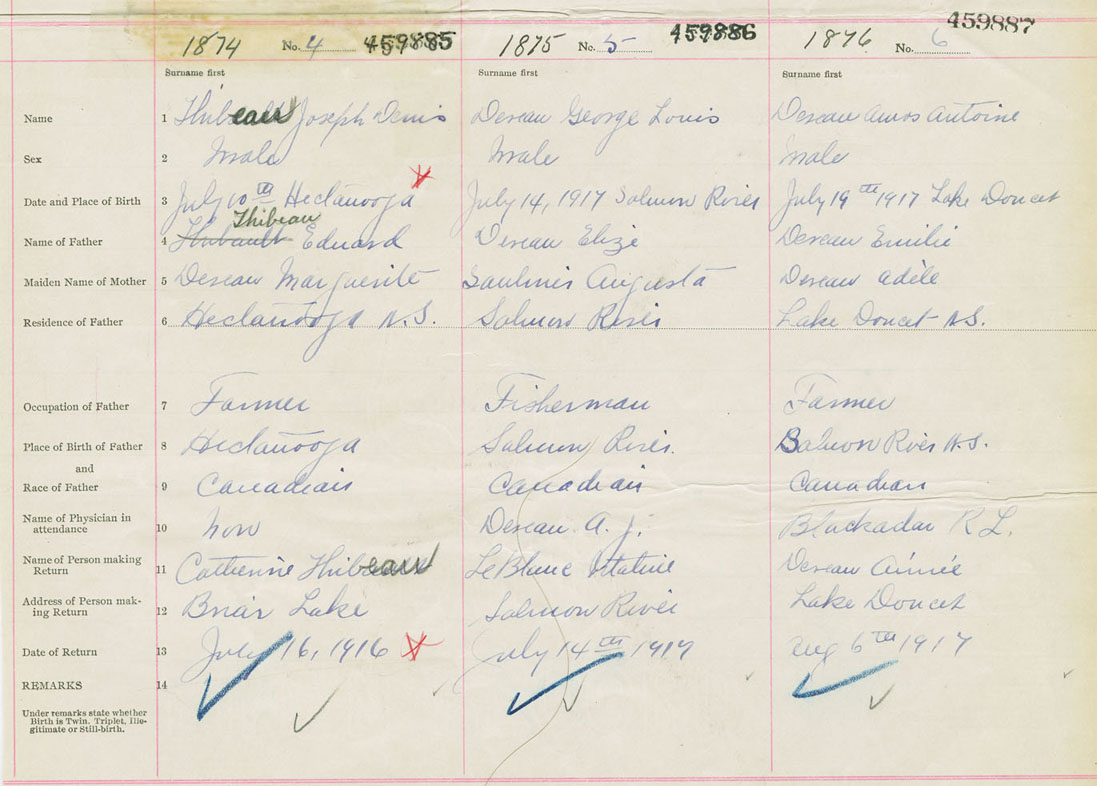 1874 No. 4 459885 1875 No. 5 459886 1876 No. 6 459887
Surname first Surname first Surname first
Name 1 Thibeau Joseph Denis Deveau George Louis Deveau Amos Antoine
Sex 2 Male Male Male
Date and Place of Birth 3 July 10th Hectanooga July 14, 1917 Salmon River July 19th 1917 Lake Doucet
Thibeau
Name of Father 4 Thibault Eduard Deveau Elizé Deveau Emilie
Maiden Name of Mother 5 Deveau Marguerite Saulnier Augusta Deveau adèle
Residence of Father 6 Hectanooga N.S. Salmon River Lake Doucet N.S.
Occupation of Father 7 Farmer Fisherman Farmer
Place of Birth of Father 8 Hectanooga Salmon River. Salmon River N.S.
and
Race of Father 9 Canadian Canadian Canadian
Name of Physician in
attendance 10 Deveau A. J. Blackadar R L.
Name of Person making
Return 11 Catherine Thibeau LeBlanc Deveau Aimée
Address of Person mak-
ing Return 12 Briar Lake Salmon River Lake Doucet
Date of Return 13 July 16, 1916 July 14th 1917 aug 6th 1917
REMARKS 14
Under remarks state whether
Birth is Twin. Triplet, Ille-
gitimate or Still-birth.